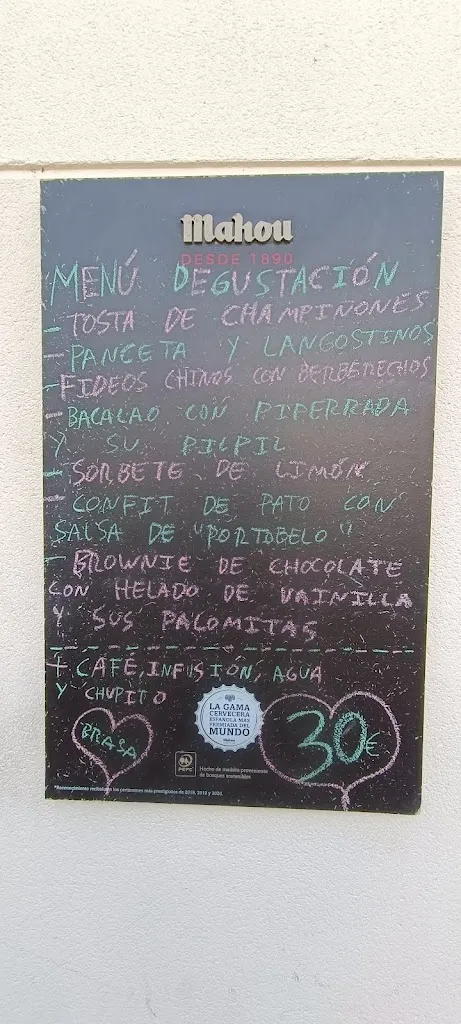 Mahou
DESDE 1890
MENÚ DEGUSTACIÓN
- TOSTA DE CHAMPIÑONES
- PANCETA Y LANGOSTINOS
- FIDEOS CHINOS CON BERBERECHOS
- BACALAO CON PIPERRADA
Y SU PILPIL
- SORBETE DE LIMÓN
- CONFIT DE PATO CON
SALSA DE "PORTOBELO"
- BROWNIE DE CHOCOLATE
CON HELADO DE VAINILLA
Y SUS PALOMITAS
+ CAFÉ, INFUSIÓN, AGUA
Y CHUPITO
BRASA
LA GAMA
CERVECERA
ESPAÑOLA MÁS
PREMIADA DEL
MUNDO
Mahou
30€
PEFC
Hecho de madera proveniente
de bosques sostenibles